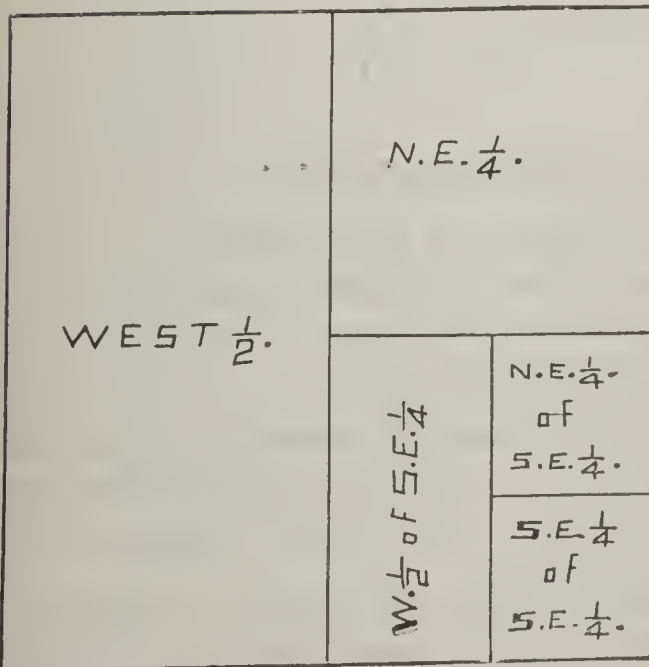 WEST 1/2.
N.E. 1/4.
W. 1/2 of S.E. 1/4
N.E. 1/4.
of
S.E. 1/4.
S.E. 1/4
of
S.E. 1/4.